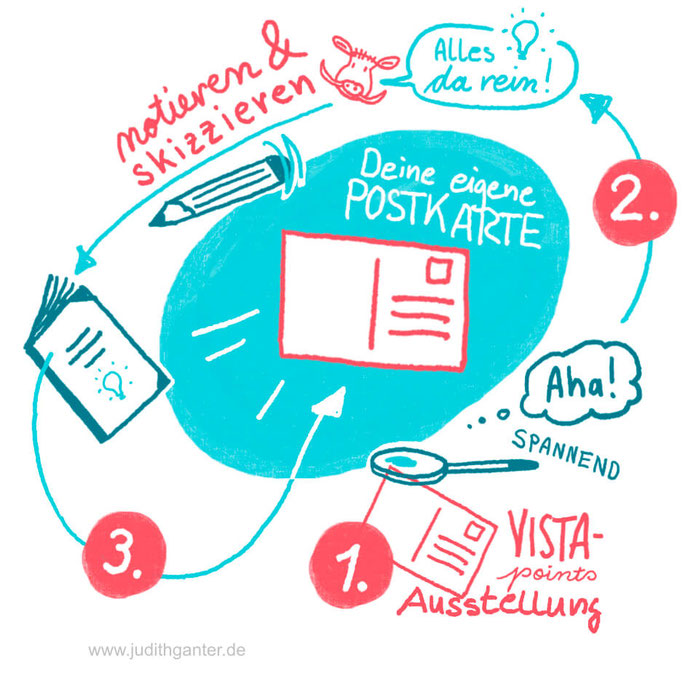 notieren &
skizzieren
Alles
da rein!
2.
Deine eigene
POSTKARTE
Aha!
SPANNEND
3.
1.
VISTA-
points
Ausstellung
www.judithganter.de